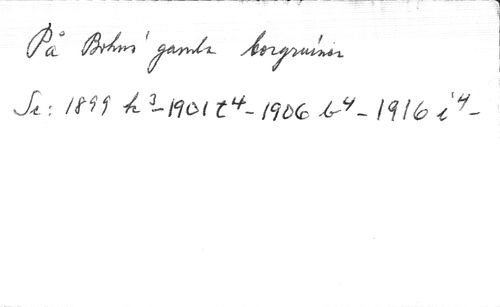 På Bohus' gamla borgruiner
Se: 1899 k³-1901 t⁴-1906 b⁴-1916 i⁴-